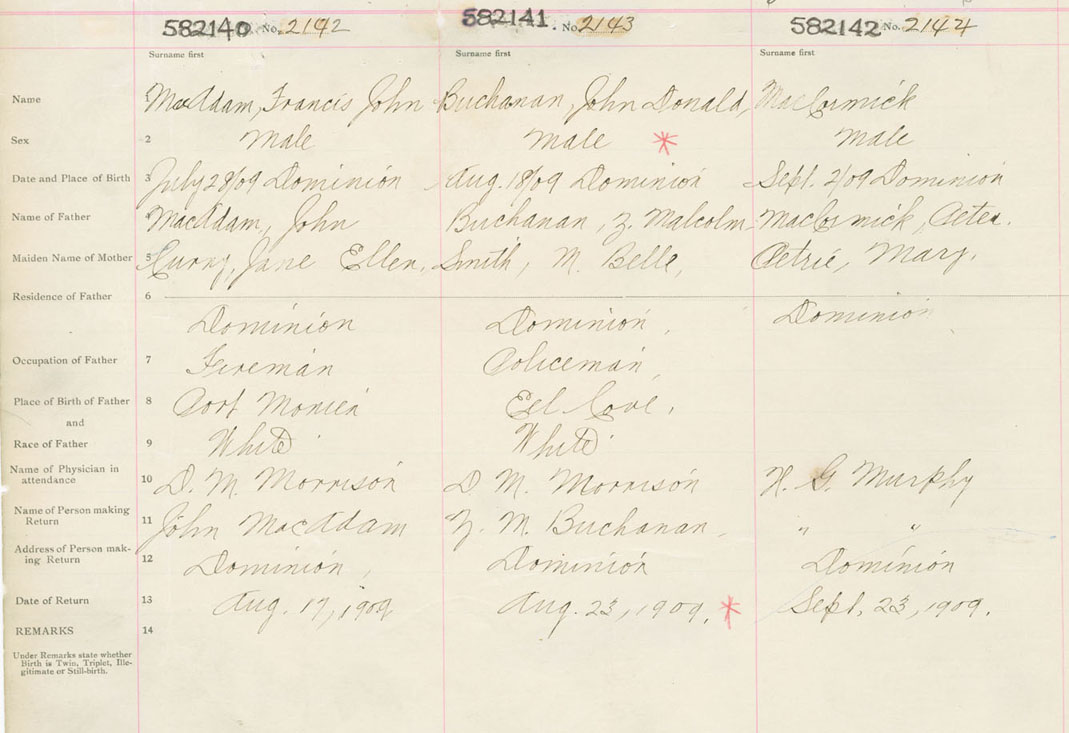 582140 No. 2142 582141. No. 2143 582142 No. 2144
Surname first Surname first Surname first
Name MacAdam, Francis John Buchanan, John Donald, MacCormick
Sex 2 Male Male * Male
Date and Place of Birth 3 July 28/09 Dominion Aug. 18/09 Dominion Sept. 2/09 Dominion
Name of Father MacAdam, John Buchanan, Z. Malcolm MacCormick, Peter.
Maiden Name of Mother 5 Jane Ellen, Smith, M. Belle, Petrie, Mary.
Residence of Father 6
Dominion Dominion, Dominion
Occupation of Father 7 Fireman Policeman,
Place of Birth of Father 8 Port Morien Eel Cove,
and
Race of Father 9 White White
Name of Physician in
attendance 10 D. M. Morrison D. M. Morrison H. G. Murphy
Name of Person making
Return 11 John MacAdam Z. M. Buchanan, " "
Address of Person mak-
ing Return 12 Dominion, Dominion Dominion
Date of Return 13 Aug. 17, 1909 Aug. 23, 1909. * Sept. 23, 1909.
REMARKS 14
Under Remarks state whether
Birth is Twin, Triplet, Ille-
gitimate or Still-birth.